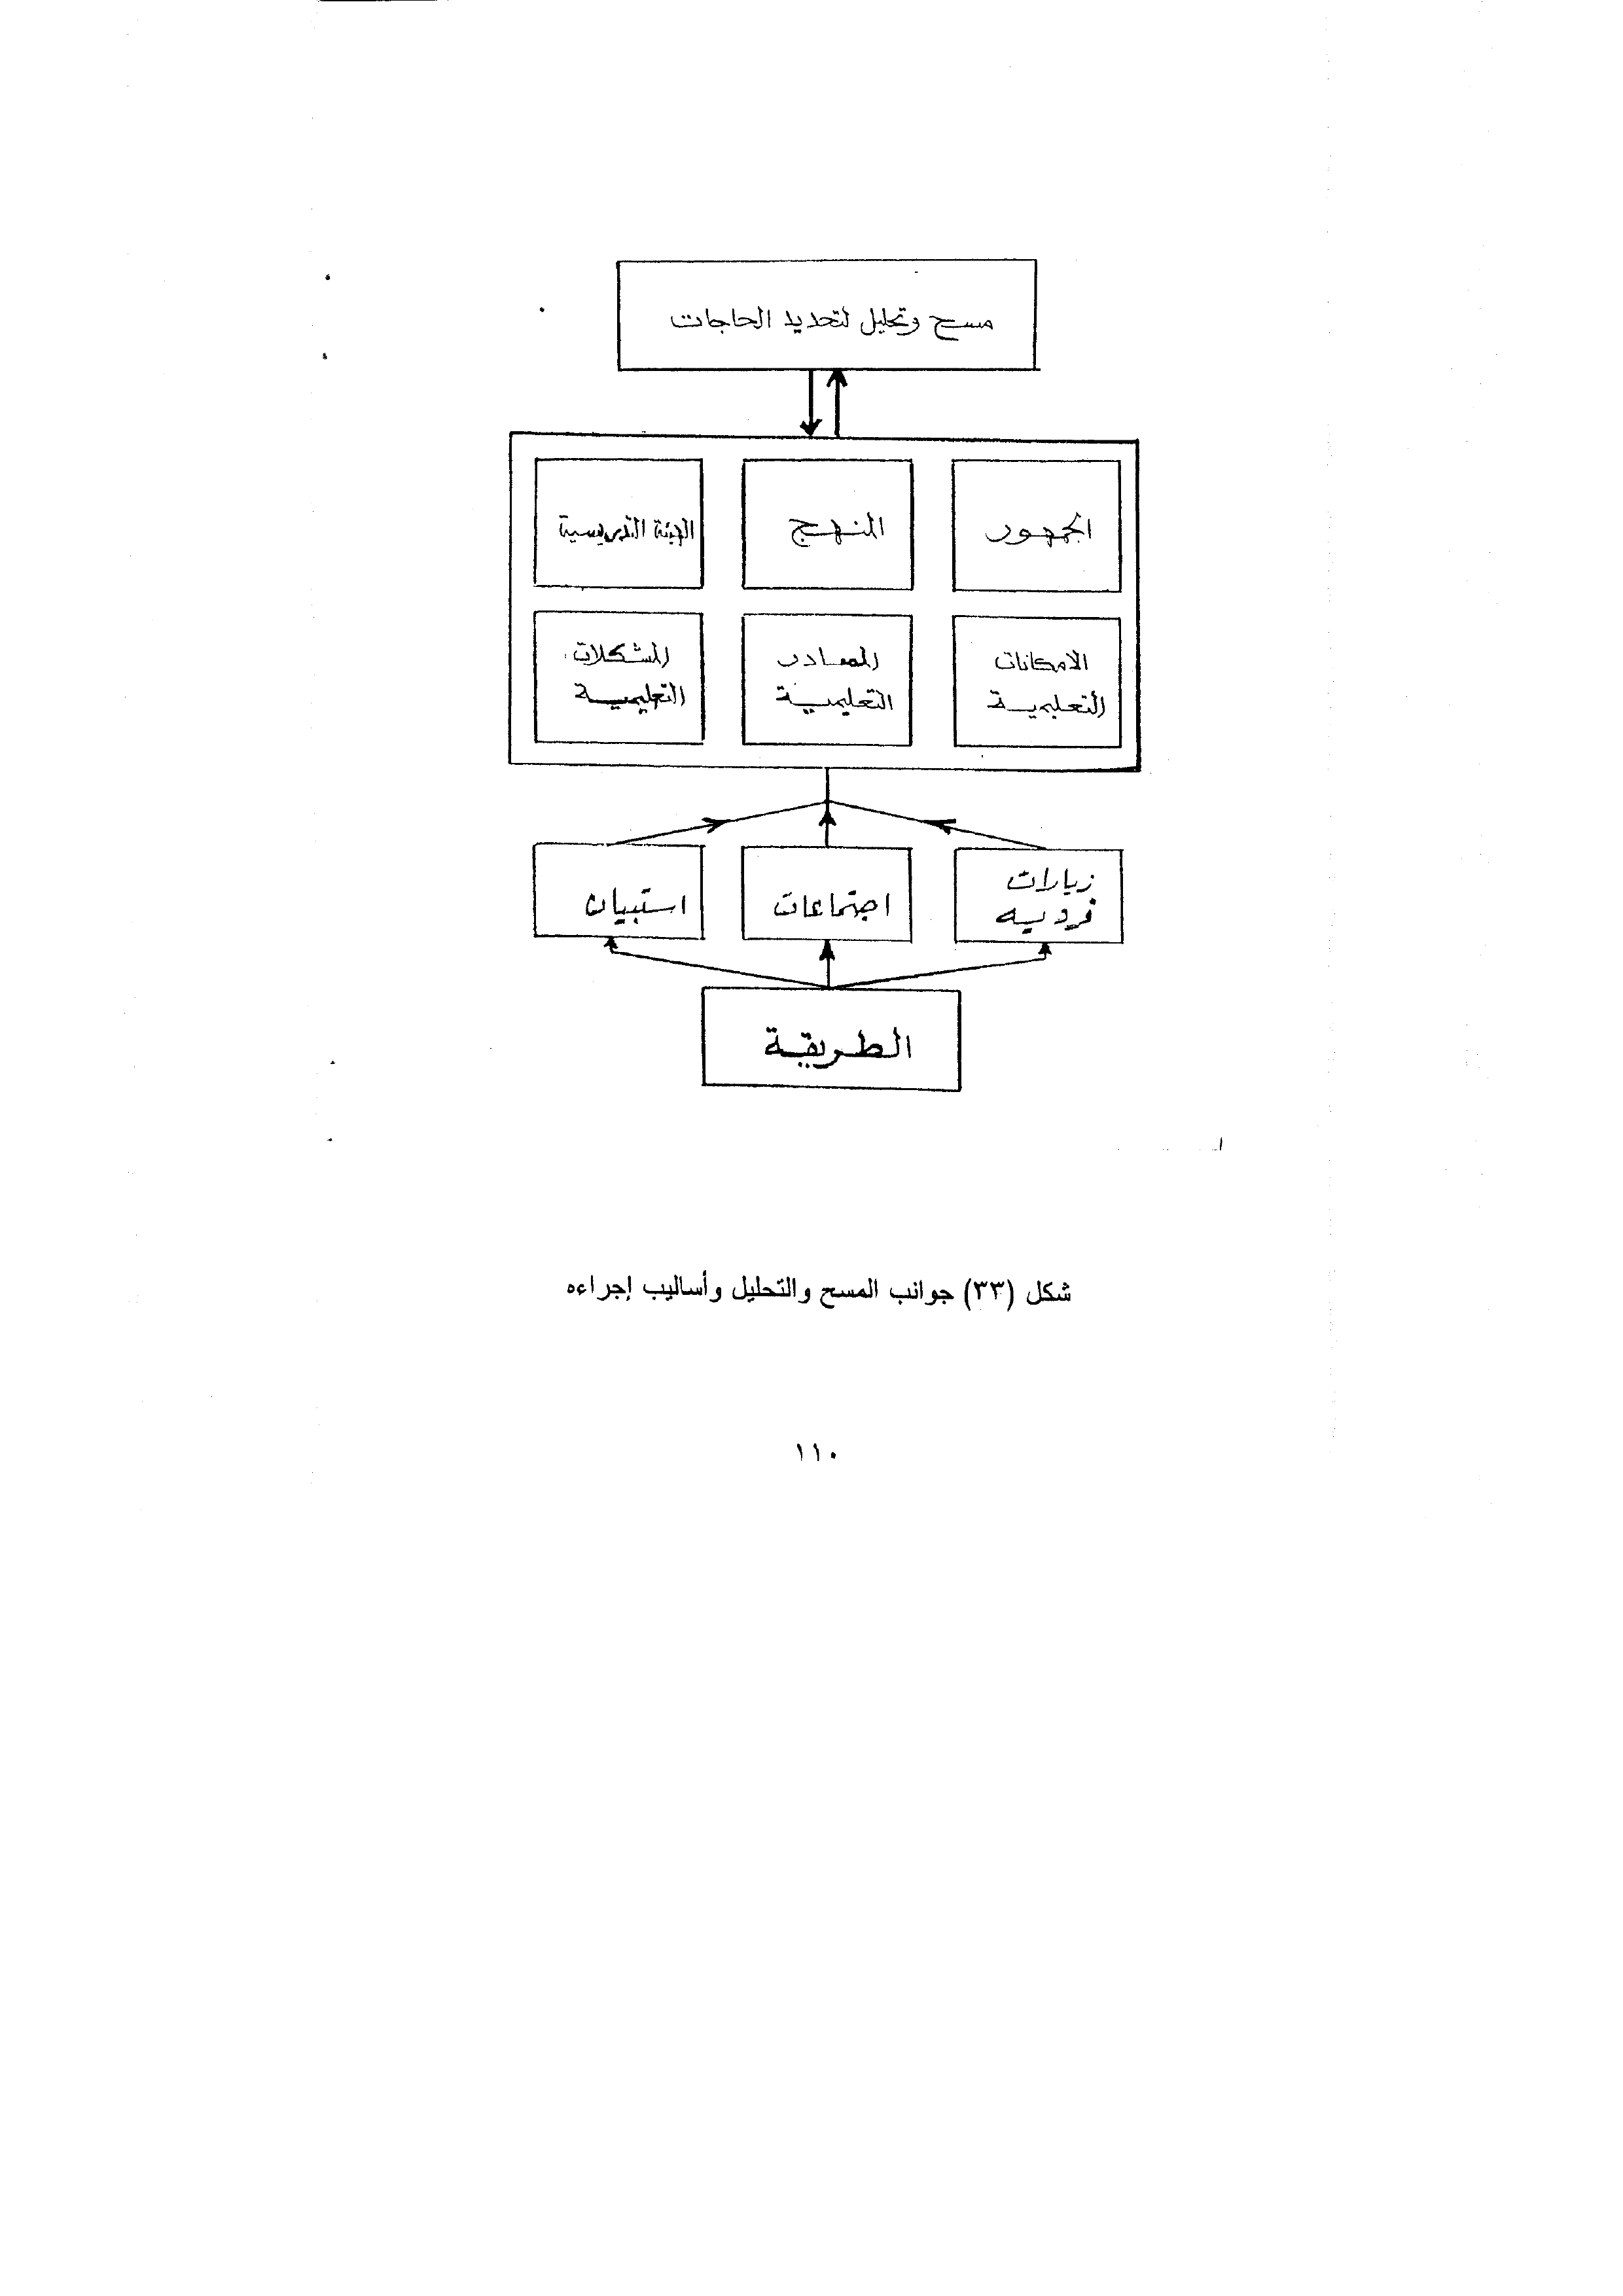 مسح وتحليل لتحديد الحاجات
الجمهور
المنهج
الهيئة التدريسية
الامكانات
التعليمية
المصادر
التعليمية
المشكلات
التعليمية
زيارات
فرديه
اجتماعات
استبيان
الطريقة
شكل (٣٣) جوانب المسح والتحليل وأساليب إجراءه
١١٠